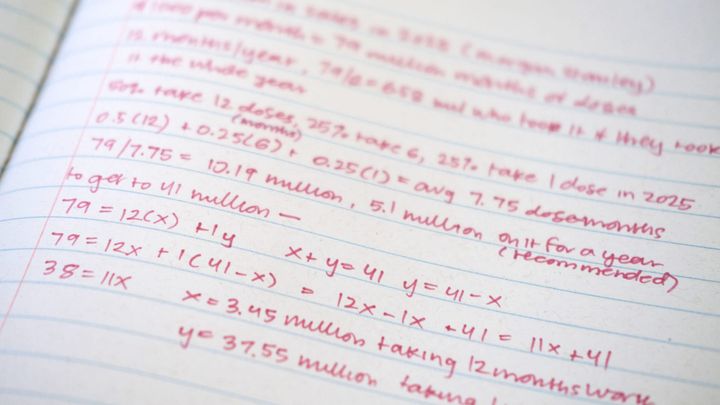 in sales in 2025 (Morgan Stanley)
$1000 per month = 79 million months of doses
12 months/year, 79/12 = 6.58 mil who took it if they took
it the whole year
50% take 12 doses, 25% take 6, 25% take 1 dose in 2025
(months)
0.5(12) + 0.25(6) + 0.25(1) = avg 7.75 dose months
79/7.75 = 10.19 million, 5.1 million on it for a year
(recommended)
to get to 41 million —
79 = 12(x) + 1y x + y = 41 y = 41 - x
79 = 12x + 1(41-x) = 12x - 1x + 41 = 11x + 41
38 = 11x x = 3.45 million taking 12 months worth
y = 37.55 million taking